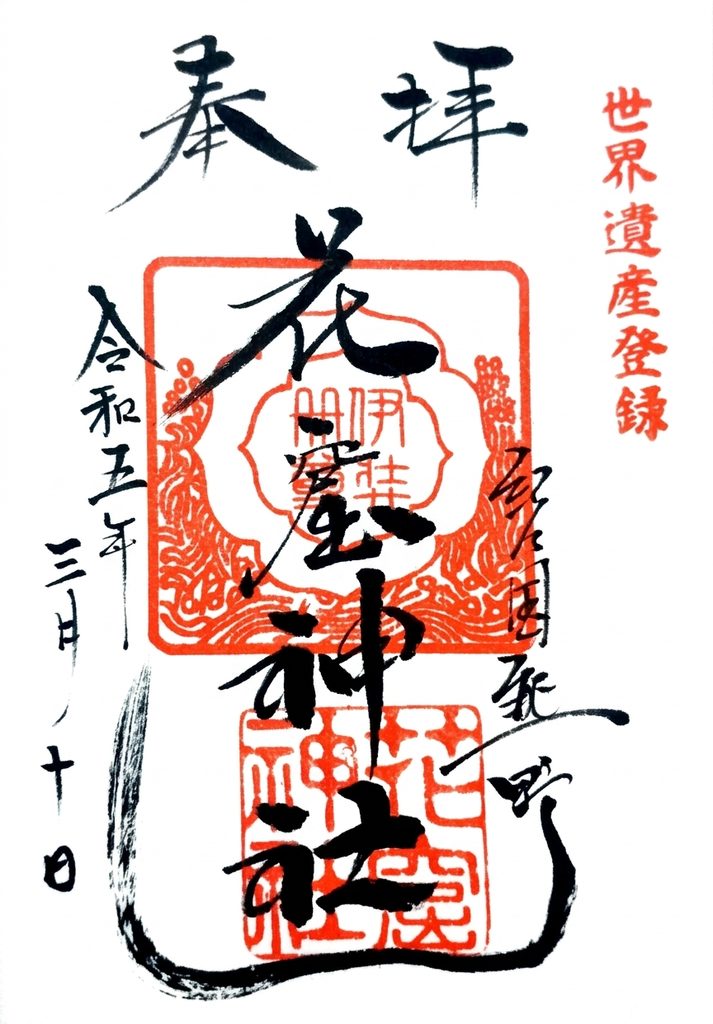 世界遺産登録
奉拝
紀の国熊野
花窟神社
令和五年
三月十日
伊弉
冊尊
花窟
神社